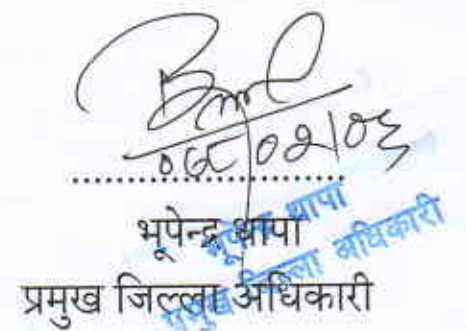 भूपेन्द्र थापा
प्रमुख जिल्ला अधिकारी
भूपेन्द्र थापा
प्रमुख जिल्ला अधिकारी